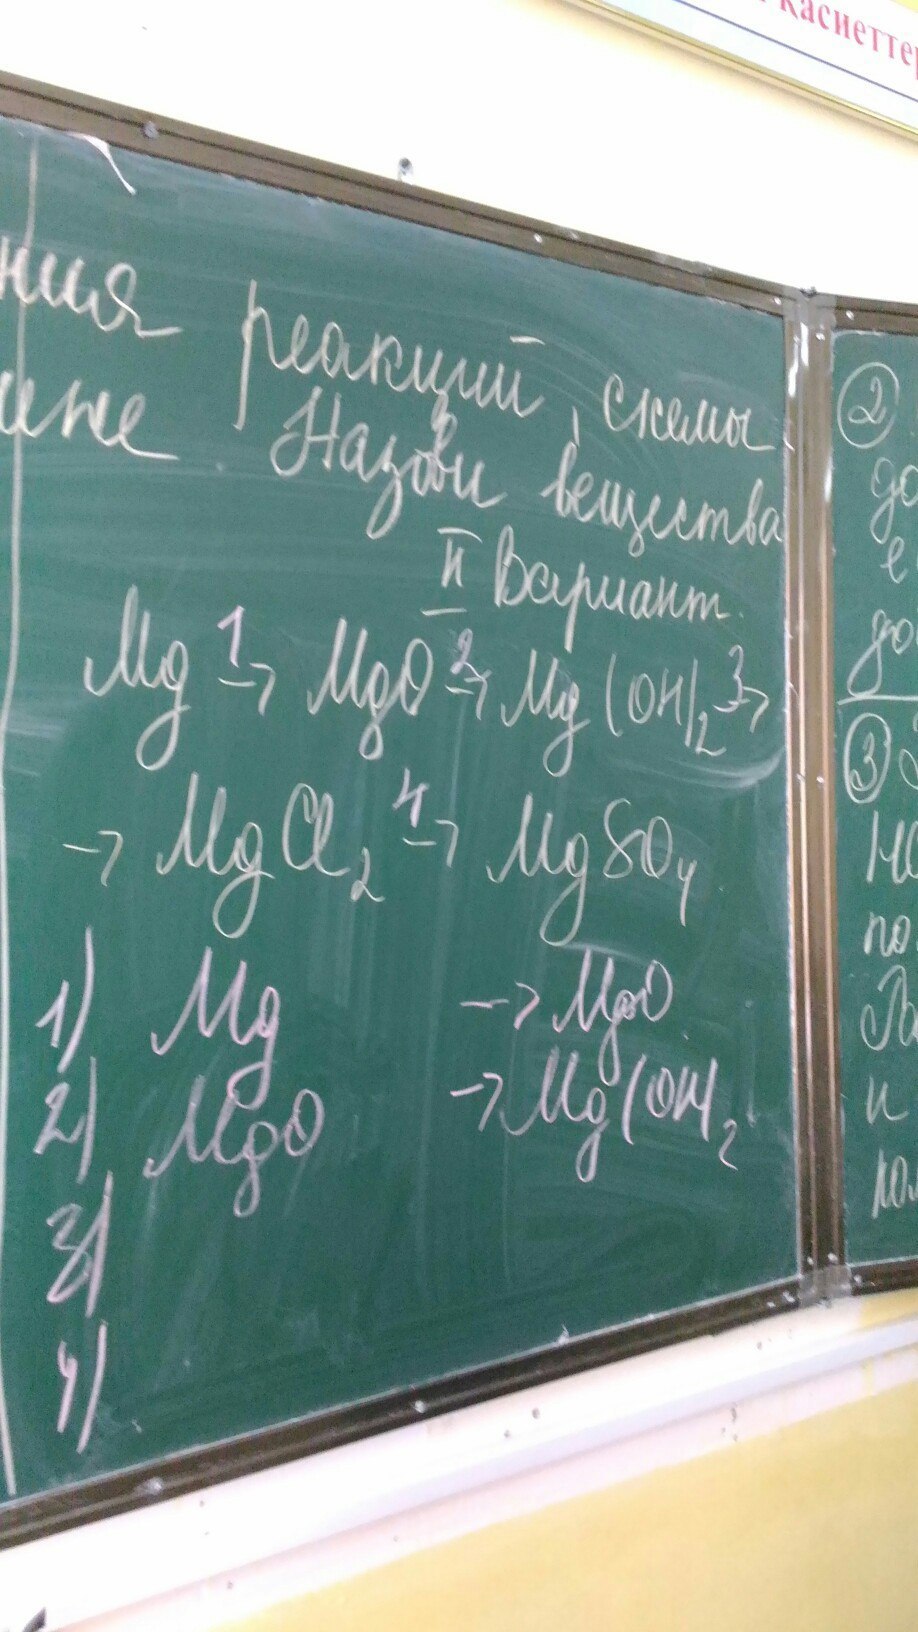 касиеттер
ния реакций, схемы
иже Назови вещества
II вариант.
Mg 1→ MgO 2→ Mg(OH)₂ 3→
→ MgCl₂ 4→ MgSO₄
1) Mg → MgO
2) MgO → Mg(OH)₂
3)
4)
2
до
е
до
3
по
и